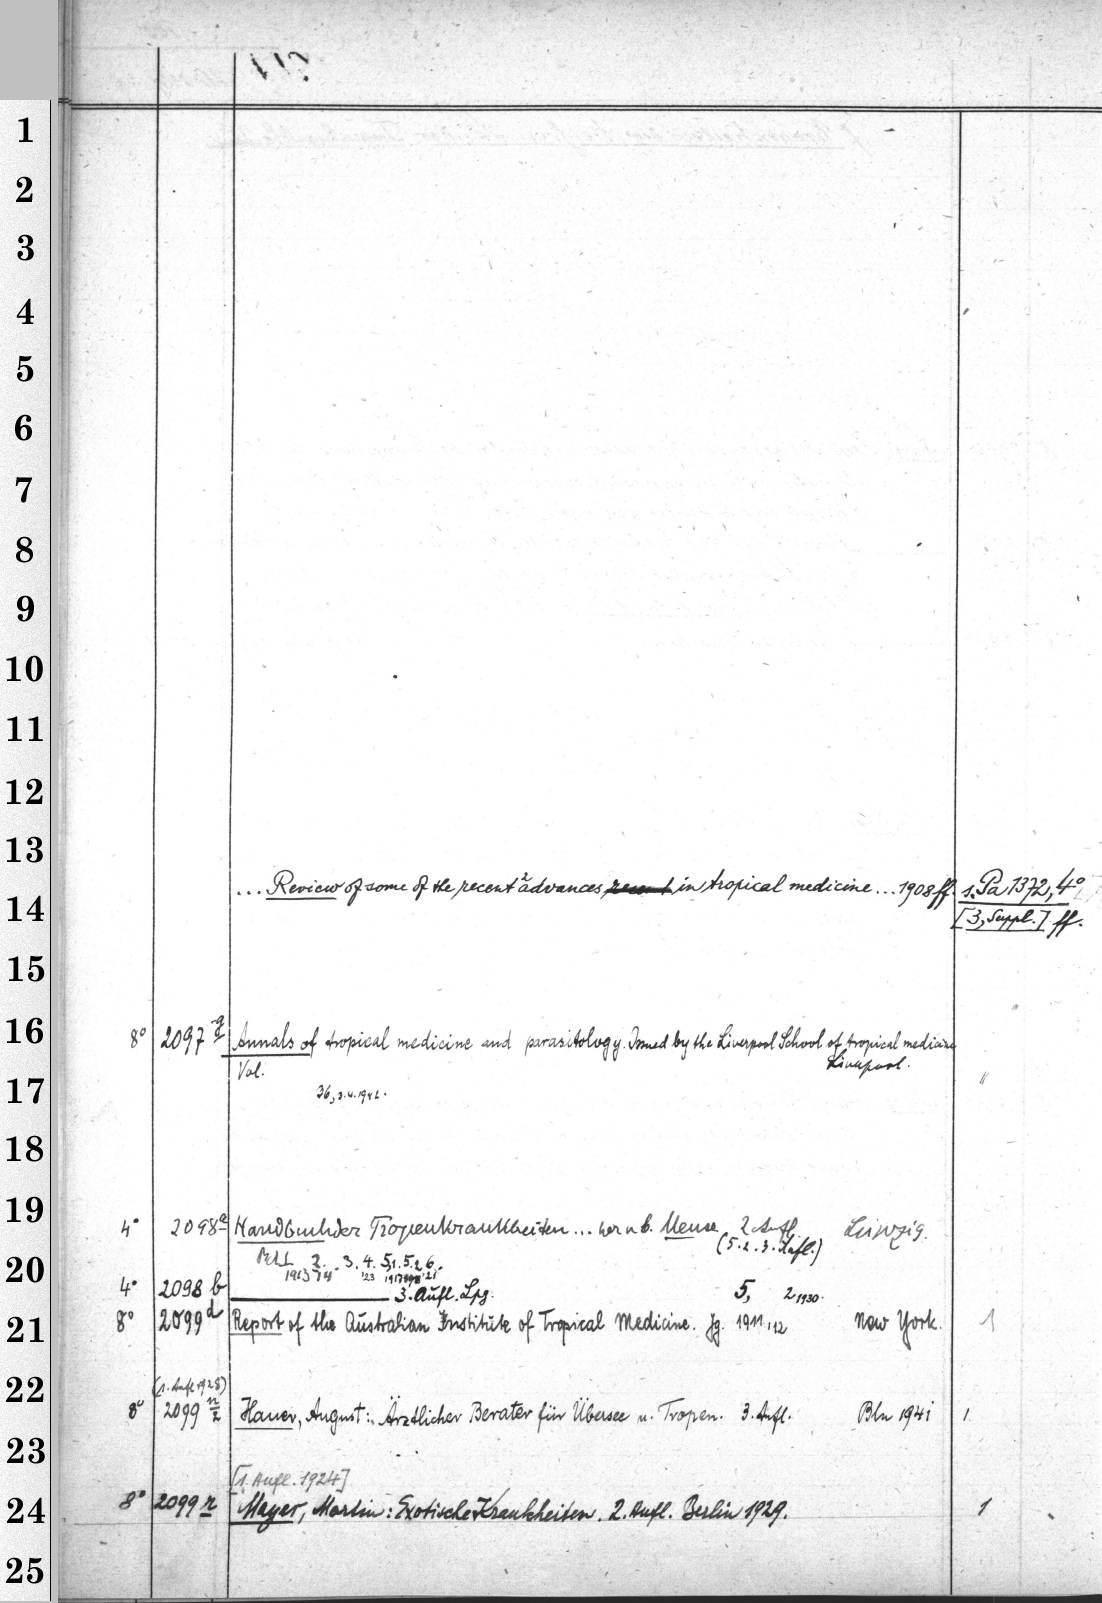 1
2
3
4
5
6
7
8
9
10
11
12
13
... Review of some of the recent advances in tropical medicine ... 1908 ff. s. Pa 1372, 4°
14
[3, Suppl.] ff.
15
16
8° 2097 g Annals of tropical medicine and parasitology. Issued by the Liverpool School of tropical medicine
Vol. Liverpool. "
17
36, 3.4. 1942.
18
19
4° 2098 a Handbuch der Tropenkrankheiten ... her v b. Mense 2 Aufl. Leipzig.
(5. 2. 3. Aufl.)
20
Bd 1 2. 3. 4. 5,1. 5.2 6.
1913 14 '23
4° 2098 b 3. Aufl. Lpg. 5, 2 1930.
21
8° 2099 d Report of the Australian Institute of Tropical Medicine. Jg. 1911, '12 New York. 1
22
(1. Aufl 1928)
8° 2099 n/2 Hauer, August: Ärztlicher Berater für Übersee u. Tropen. 3. Aufl. Bln 1941 1
23
[1. Aufl. 1924]
24
8° 2099 r Mayer, Martin: Exotische Krankheiten. 2. Aufl. Berlin 1929. 1
25